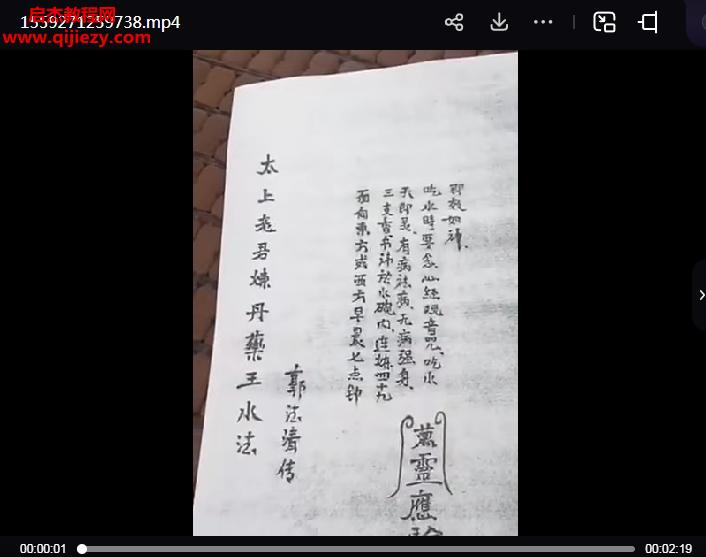 1559271259738.mp4
启杰教程网
www.qijiezy.com
太上老君煉丹藥王水法
郭法清传
面向東方或西方早晨七点钟
三支香书讳於水碗内,连炼四十九
天即灵,有病祛病,无病强身,
吃水時要念心经观音咒,吃水
即效如神.
萬靈應
00:00:01
00:02:19